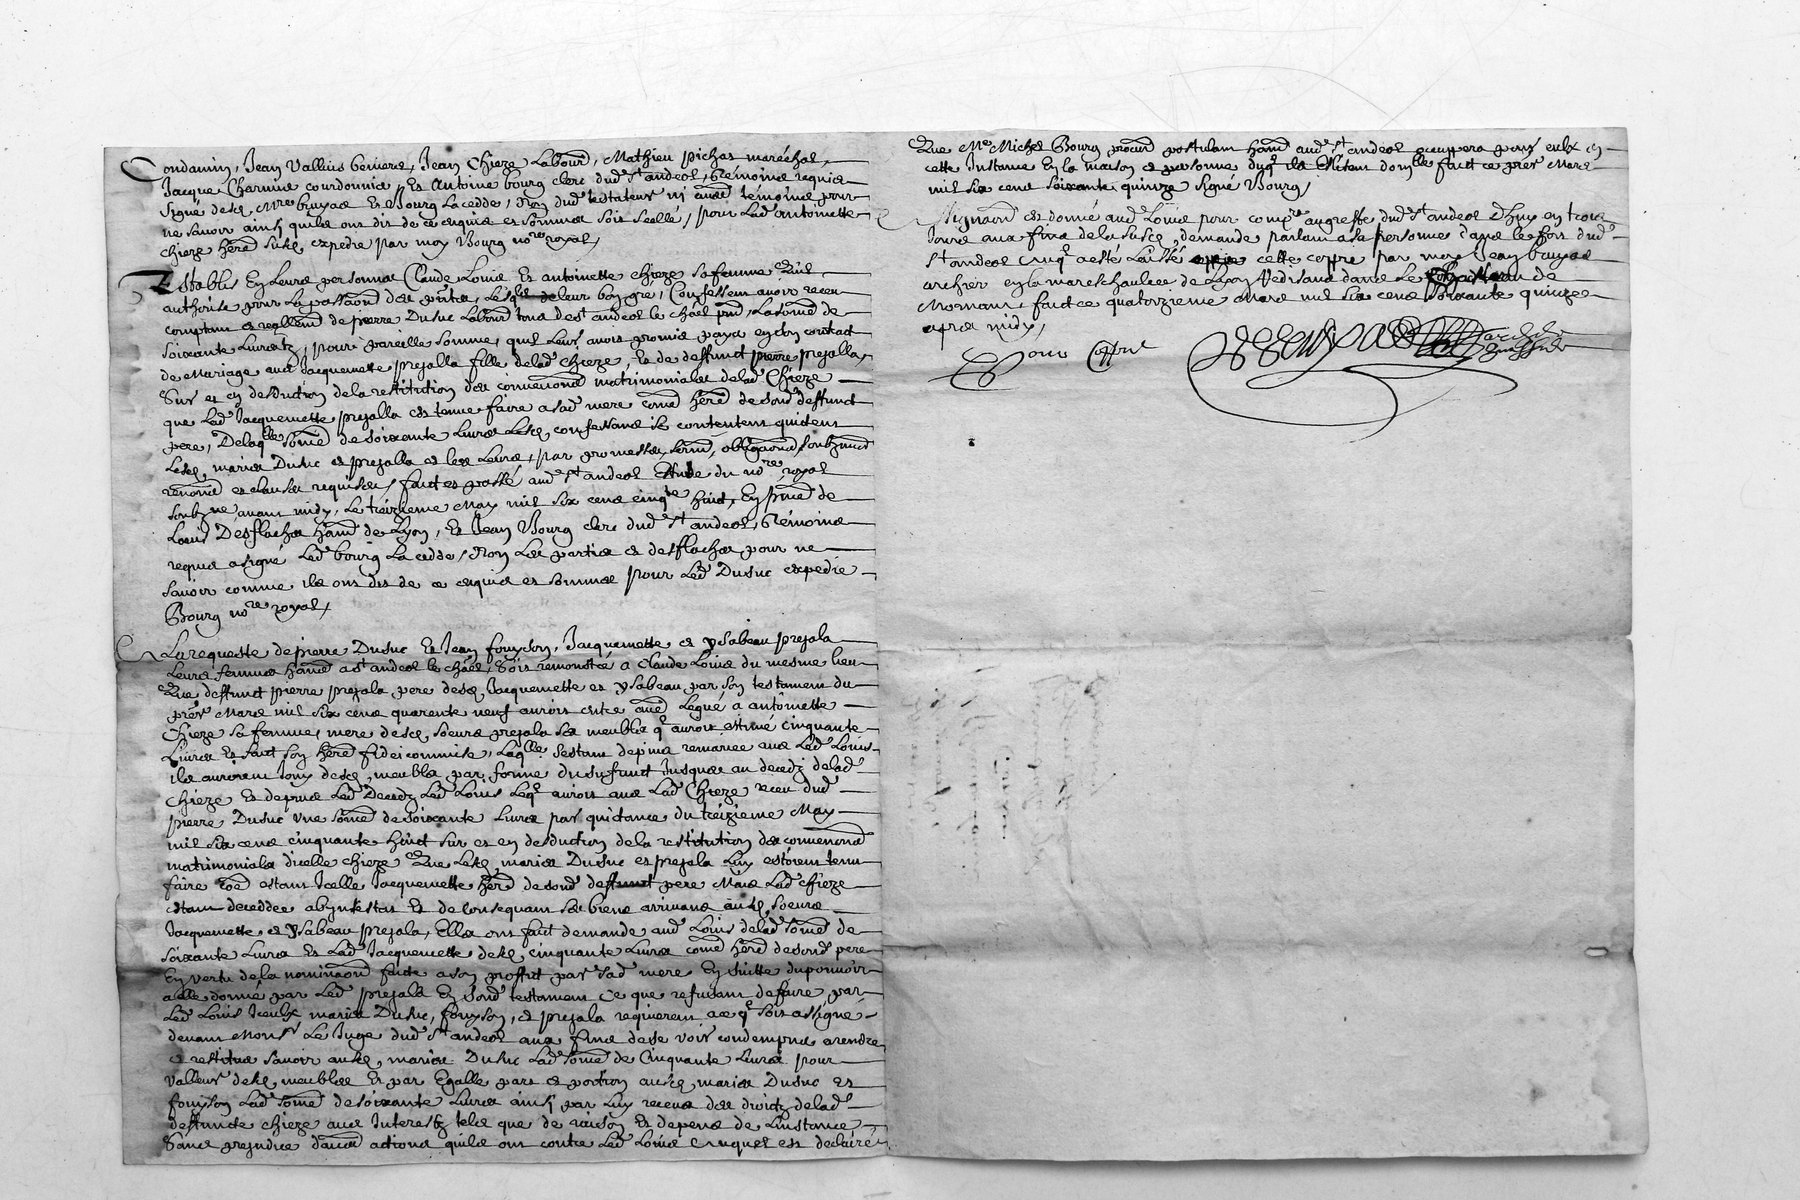 Condamin, Jean Vallius Jean Chieze Labour, Mathieu pichas maréchal,
Jacque Charmine courdonnier Et Antoine bourg clerc dud St andeol, témoins requis
signé desd bruyas Et Bourg La cedde, Non dud testateur ni autres témoins pour
ne savoir ainsi quils ont dit de ce enquis et sommés soit scellé, pour Lad antoinette
chieze hered susd expedié par moy Bourg nore royal,
Establis En Leurs personnes Claude Louis Et antoinette chieze sa femme quil
authorise pour La passaon des pntes, Lesqls de leur bon gré, Confessent avoir receu
comptant et reallemt de pierre Dusuc Labour tond de St andeol le chael pnt, La some de
soixante Livres tz, pour pareille somme, quil Leur avoit promis paya en son contact
de Mariage avec Jacquemette prejalla fille de lad chieze, Et de deffunct pierre prejalla,
Sur et en desduction de la restitution des convenons matrimoniales de lad Chieze
que Lad Jacquemette prejalla est tenue faire a sad mere come hered de sond deffunct
pere, De laqlle some de soixante Livres Lesd confessans se contentent quictent
Lesd mariés Dusuc et prejalla et les Leurs, par promesses, serm, obligaons, soubzmis
renons et clauses requises, faict et passé aud St andeol Estude du nore royal
soubz né avant midy, Le treizieme May mil six cens cinqte huict, En pnce de
Louis Desflaches hant de Lyon, Et Jean Bourg clerc dud St andeol, témoins
requis a signé Led bourg La cedde, Non Les parties et desflaches, pour ne
savoir comme ils ont dit de ce enquis et sommés pour Led Dusuc expedié
Bourg nore royal,
La requeste de pierre Dusuc Et Jean fonyson, Jacquemette et ysabeau prejala
Leurs femmes hants a St andeol le chael, Soit remonstré a Claude Louis du mesme lieu
Que deffunct pierre prejala pere desd Jacquemette et ysabeau par son testament du
per Mars mil six cens quarente neuf auroit entre aues Legué a antoinette
Chieze sa femme, mere desd soeurs prejala ses meubles q auroit estimé cinquante
Livres Et faict son hered fideicommise, Laqlle sestant depuis remariee avec Led Louis
ils auroient jouy desd meubles par forme dusufruict Jusques au decedz de lad
Chieze Et depuis Led Decedz Led Louis Leql auroit avec Lad Chieze receu dud
pierre Dusuc une some de soixante Livres par quictance du treizieme May
mil six cens cinquante huict sur et en desduction de la restitution des convenons
matrimoniales dicelle chieze Que Lesd mariés Dusuc et prejala Luy estoient tenu
faire come estant Icelle Jacquemette hered de sond deffunct pere Mais Lad chieze
estant deceddee abyntestat Et de consequant ses biens arrivans ausd soeurs
Jacquemette et ysabeau prejala, Elles ont faict demande aud Louis de lad some de
soixante Livres Et Lad Jacquemette desd cinquante Livres come hered de sond pere
En vertu de la nominaon faicte a son proffit par sad mere En suitte du pouvoir
a elle donné par Led prejala En sond testament Ce que refusant de faire par
Led Louis Iceulx mariés Dusuc, fonyson, et prejala requierent a ce q soit assigné
devant Monsr Le Juge dud St andeol aux fins de se voir condempné a rendre
et restitué savoir ausd mariés Dusuc Lad some de Cinquante Livres pour
valleur desd meubles Et par Egalle part et portion ausd mariés Dusuc et
fonyson Lad some de soixante Livres ainsi par Luy receus des droictz de lad
deffuncte chieze avec Interestz telz que de raison Et despens de Linstance
Sans prejudice dautres actions quils ont contre Led Louis auquel est declairé
Que Me Michel Bourg procur postulant hant aud St andeol occupera pour eulx en
cette Instance En la maison et personne duql ils Elisent domlle faict ce per Mars
mil six cens soixante quinze signé Bourg,
Assignaon est donné aud Louis pour compre au greffe dud St andeol dhuy en trois
Jours aux fins de la susd demande parlant a sa personne dans le fort dud
St andeol Auql a esté Laissé cette coppie par moy Jean bruyas
archier en la mareschaulcee de Lyon Residand dans Le de
Mornant, faict ce quatorzieme Mars mil six cens soixante quinze
apres midy,
Pour Coppie